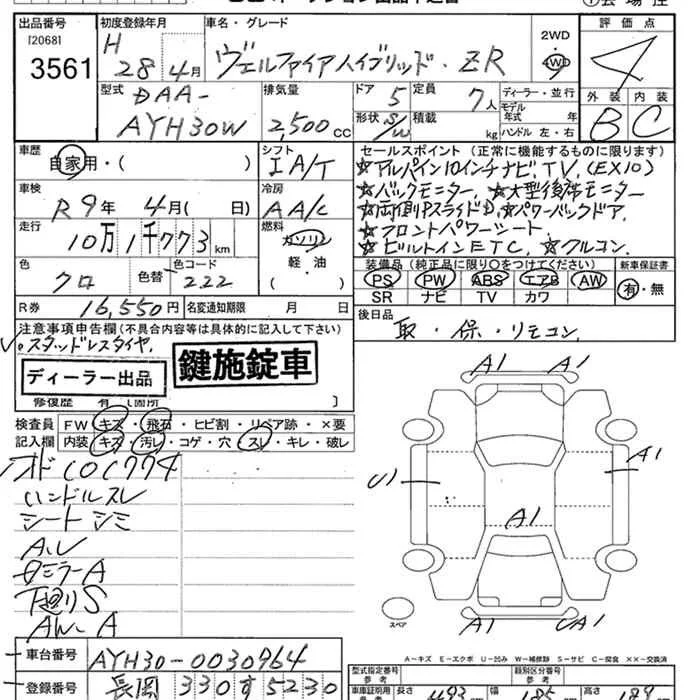 出品番号 初度登録年月 車名・グレード 評価点
[2068]
3561
H 28年 4月
ヴェルファイアハイブリッド・ZR
2WD
4WD
4
型式 排気量 ドア 5 定員 7人 ディーラー・並行
DAA-
AYH30W
2,500cc
形状 S/W 積載 kg
モデル年式 年式
ハンドル 左・右
外装 内装
B C
車歴 シフト セールスポイント(正常に機能するものに限ります)
自家用・( )
IA/T
☆アルパイン10インチナビ,TV,(EX10)
車検 冷房
R9年 4月( 日)
AA/C
☆バックモニター,☆大型後席モニター
☆両側Pスライド,☆パワーバックドア,
走行 燃料
10万1千773km
ガソリン
軽・油
( )
☆フロントパワーシート
☆ビルトインETC,☆クルコン,
色 色替 色コード
クロ
222
装備品(純正品に限り○をつけてください) 新車保証書
PS PW ABS エアB AW
SR ナビ TV カワ
有・無
R券 16,550円 名変通知期限 月 日
後日品
取・保・リモコン,
注意事項申告欄(不具合内容等は具体的に記入して下さい)
スタッドレスタイヤ,
ディーラー出品
鍵施錠車
修復歴 有(箇所 )
検査員 FW キズ・飛石・ヒビ割・リペア跡・×要
記入欄 内装 キズ・汚レ・コゲ・穴・スレ・キレ・破レ
ハンドルスレ
シートシミ
下廻りS
AW A
A1 A1
U1 A1
A1
A1 UA1
スペア
A-キズ E-エクボ U-凹み W-補修跡 S-サビ C-腐食 ××-交換済
車台番号 AYH30-0030964
型式指定番号 類別区分番号
参考 参考
登録番号 長岡 330す5230
車庫証明用
長さ 493 幅 185 高さ 189